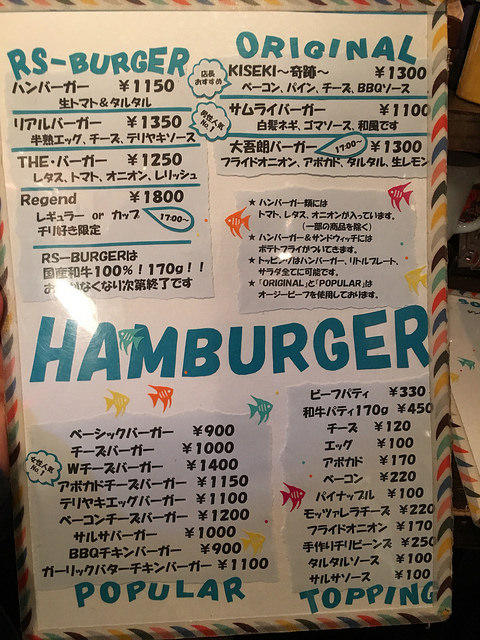 RS-BURGER
ハンバーガー ￥1150
生トマト&タルタル
リアルバーガー ￥1350
半熟エッグ、チーズ、テリヤキソース
THE・バーガー ￥1250
レタス、トマト、オニオン、レリッシュ
Regend ￥1800
レギュラー or カップ 17:00~
チリ好き限定
RS-BURGERは
国産和牛100%！170g！！
なくなり次第終了です
ORIGINAL
店長おすすめ
KISEKI～奇跡～ ￥1300
ベーコン、パイン、チーズ、BBQソース
男性人気No.1
サムライバーガー ￥1100
白髪ネギ、ゴマソース、和風です
大吾郎バーガー 17:00~ ￥1300
フライドオニオン、アボカド、タルタル、生レモン
★ ハンバーガー類には
トマト、レタス、オニオンが入っています。
(一部の商品を除く)
★ ハンバーガー&サンドウィッチには
ポテトフライがついてきます。
★ トッピングはハンバーガー、リトルプレート、
サラダ全てに可能です。
★ 「ORIGINAL」と「POPULAR」は
オージービーフを使用しております。
HAMBURGER
ベーシックバーガー ￥900
チーズバーガー ￥1000
女性人気No.1
Wチーズバーガー ￥1400
アボカドチーズバーガー ￥1150
テリヤキエッグバーガー ￥1100
ベーコンチーズバーガー ￥1200
サルサバーガー ￥1000
BBQチキンバーガー ￥900
ガーリックバターチキンバーガー ￥1100
POPULAR
ビーフパティ ￥330
和牛パティ170g ￥450
チーズ ￥120
エッグ ￥100
アボカド ￥170
ベーコン ￥220
パイナップル ￥100
モッツァレラチーズ ￥220
フライドオニオン ￥170
手作りチリビーンズ ￥250
タルタルソース ￥100
サルサソース ￥100
TOPPING